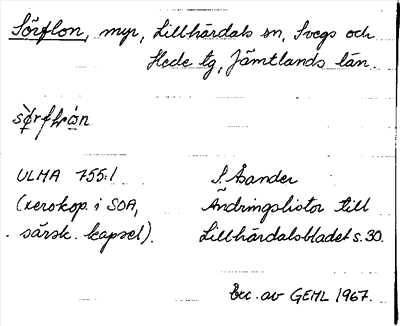 Sörflon, myr, Lillhärdals sn, Svegs och
Hede tg, Jämtlands län.
ULMA 755:1
(xerokop. i SOA,
särsk. kapsel).
S. Åsander
Ändringslistor till
Lillhärdalsbladet s. 30.
Exc. av GEHL 1967.